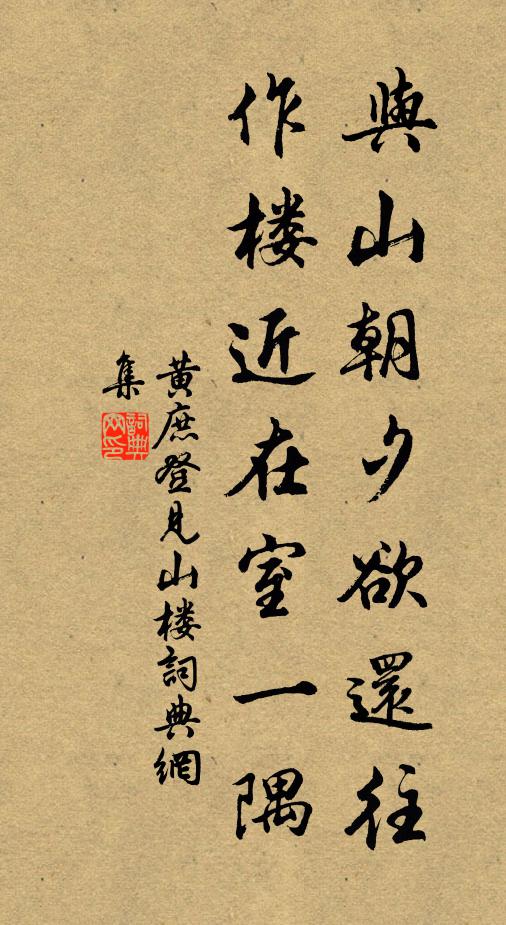 與山朝夕欲還往
作楼近在室一隅
黃庶登見山楼詞典網
集
詞典
网印